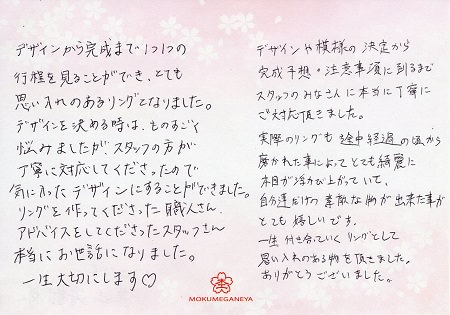 デザインから完成まで1つ1つの
行程を見ることができ、とても
思い入れのあるリングとなりました。
デザインを決める時は、ものすごく
悩みましたが、スタッフの方が
丁寧に対応してくださったので
気に入ったデザインにすることができました。
リングを作ってくださった職人さん、
アドバイスをしてくださったスタッフさん
本当にお世話になりました。
一生大切にします♡
デザインや模様の決定から
完成予想・注意事項に到るまで
スタッフのみなさんに本当に丁寧に
ご対応頂きました。
実際のリングも途中経過の頃から
磨かれた事によってとても綺麗に
木目が浮かび上がっていて、
自分達だけの素敵な物が出来た事が
とても嬉しいです。
一生付き合っていくリングとして
思い入れのある物を頂きました。
ありがとうございました。
MOKUMEGANEYA